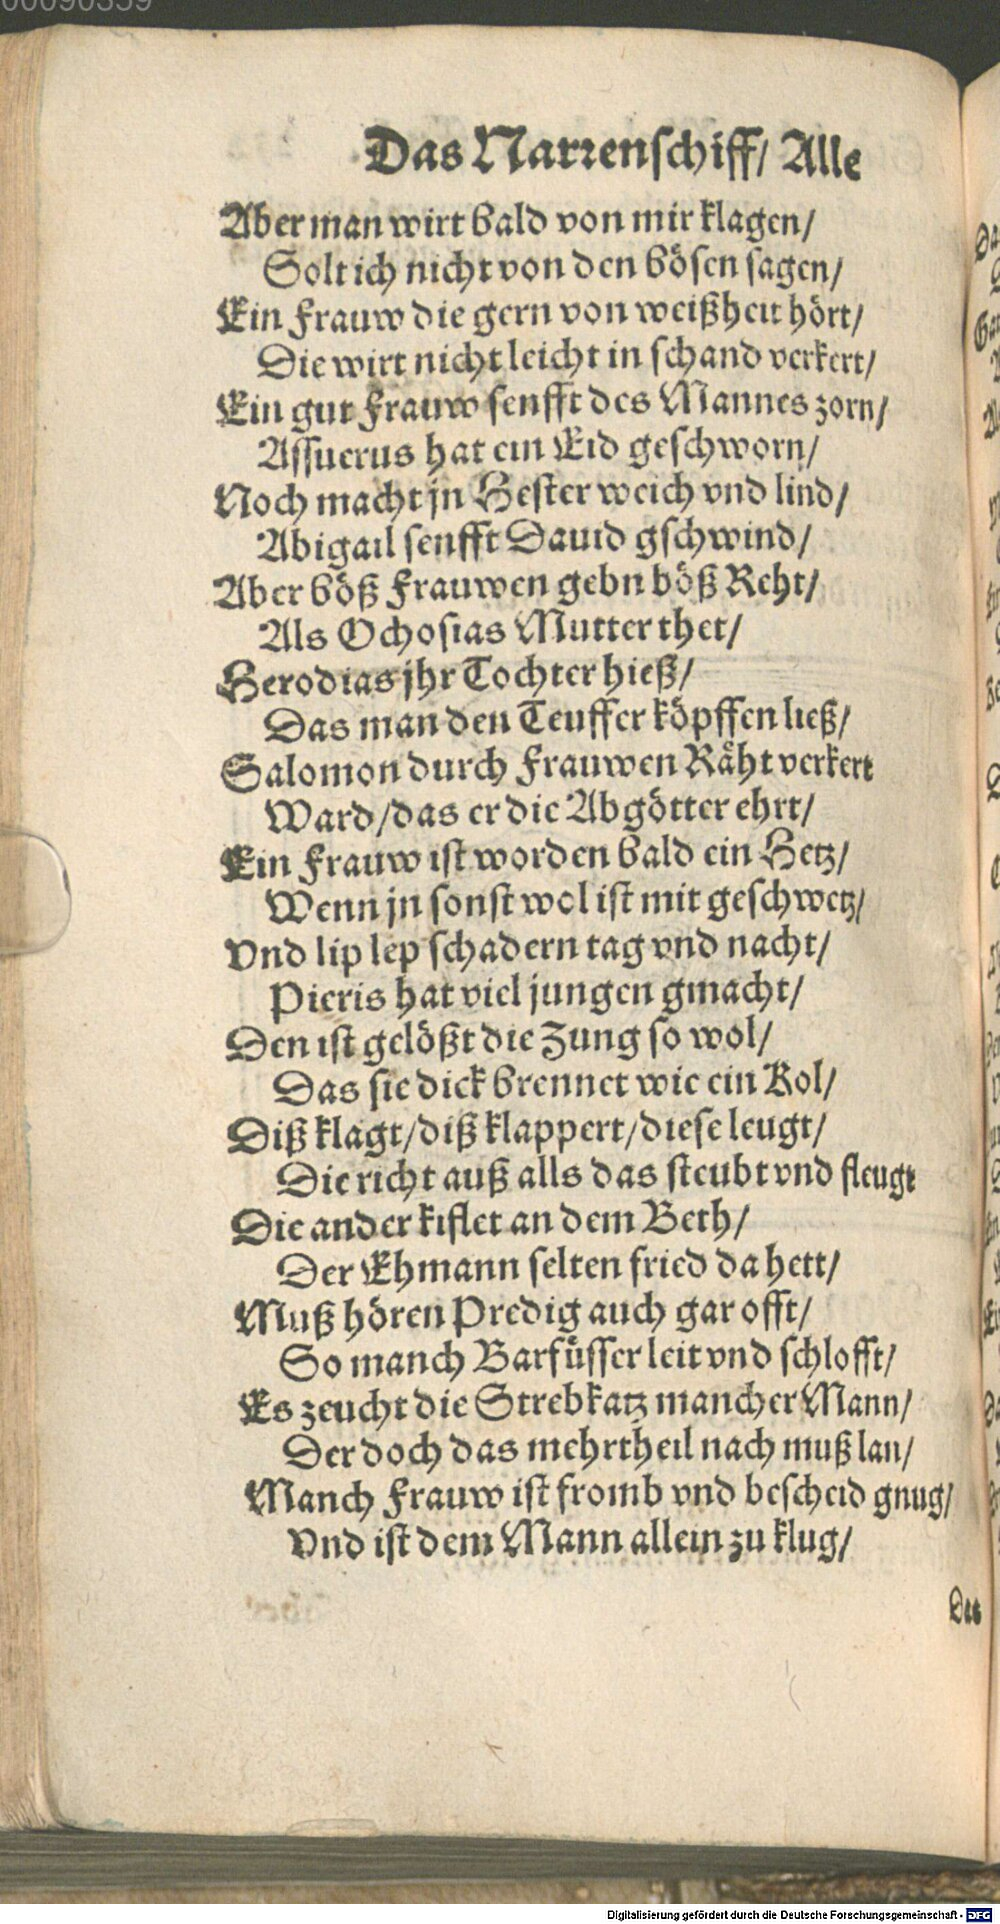 00090359
Das Narrenschiff/ Alle
Aber man wirt bald von mir klagen/
Solt ich nicht von den bösen sagen/
Ein Frauw die gern von weißheit hört/
Die wirt nicht leicht in schand verkert/
Ein gut Frauw senfft des Mannes zorn/
Assuerus hat ein Eid geschworn/
Noch macht jn Hester weich vnd lind/
Abigail senfft Dauid gschwind/
Aber böß Frauwen gebn böß Reht/
Als Ochosias Mutter thet/
Herodias jhr Tochter hieß/
Das man den Teuffer köpffen ließ/
Salomon durch Frauwen Räht verkert
Ward/das er die Abgötter ehrt/
Ein Frauw ist worden bald ein Hetz/
Wenn jn sonst wol ist mit geschwetz/
Vnd lip lep schadern tag vnd nacht/
Pieris hat viel jungen gmacht/
Den ist gelößt die Zung so wol/
Das sie dick brennet wie ein Kol/
Diß klagt/diß klappert/diese leugt/
Die richt auß alls das steubt vnd fleugt
Die ander kiflet an dem Beth/
Der Ehmann selten fried da hett/
Muß hören Predig auch gar offt/
So manch Barfüsser leit vnd schlofft/
Es zeucht die Strebkatz mancher Mann/
Der doch das mehrtheil nach muß lan/
Manch Frauw ist fromb vnd bescheid gnug/
Vnd ist dem Mann allein zu klug/
Digitalisierung gefördert durch die Deutsche Forschungsgemeinschaft - DFG